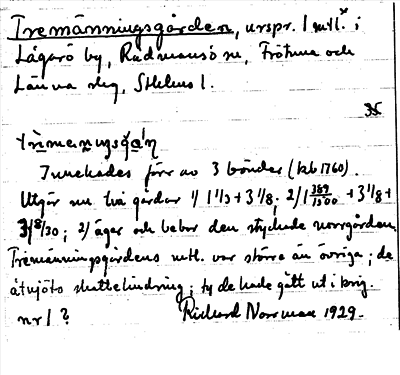 Tremänningsgården, urspr. 1 mtl. i
Lågarö by, Rådmansö sn, Frötuna och
Länna slg, Sthlms l.
35
Innehades förr av 3 bönder (kb 1760).
Utgör nu två gårdar 1/ 1 1/3 + 3 1/8; 2/ 1 389/1500 + 3 1/8 +
2/ äger och bebor den styckade norrgården.
Tremänningsgårdens mtl. var större än övriga; de
åtnjöto skattelindring; ty de hade gått ut i krig.
nr 1 ? Richard Norrman 1929.